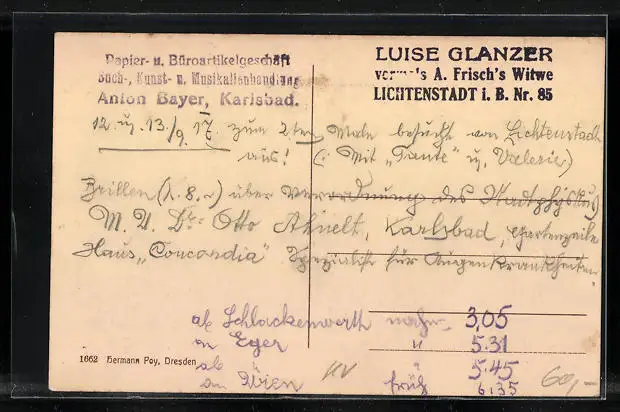 Papier- u. Büroartikelgeschäft
Buch-, Kunst- u. Musikalienhandlung
Anton Bayer, Karlsbad.
LUISE GLANZER
vormals A. Frisch's Witwe
LICHTENSTADT i. B. Nr. 85
12. u. 13./9. 17. zum 2ten Male besucht von Lichtenstadt
aus! (: Mit „Tante" u. Valerie)
Brillen (1. 8. ~) über Verordnung des Stadtphysikus
M. U. Dr. Otto Ahnelt, Karlsbad, Gartenzeile
Haus „Concordia" Spezialist für Augenkrankheiten.
ab Schlackenwerth nachm. 3,05
an Eger " 5.31
ab " 5.45
an Wien früh 6.35
1662 Hermann Poy, Dresden
60,-